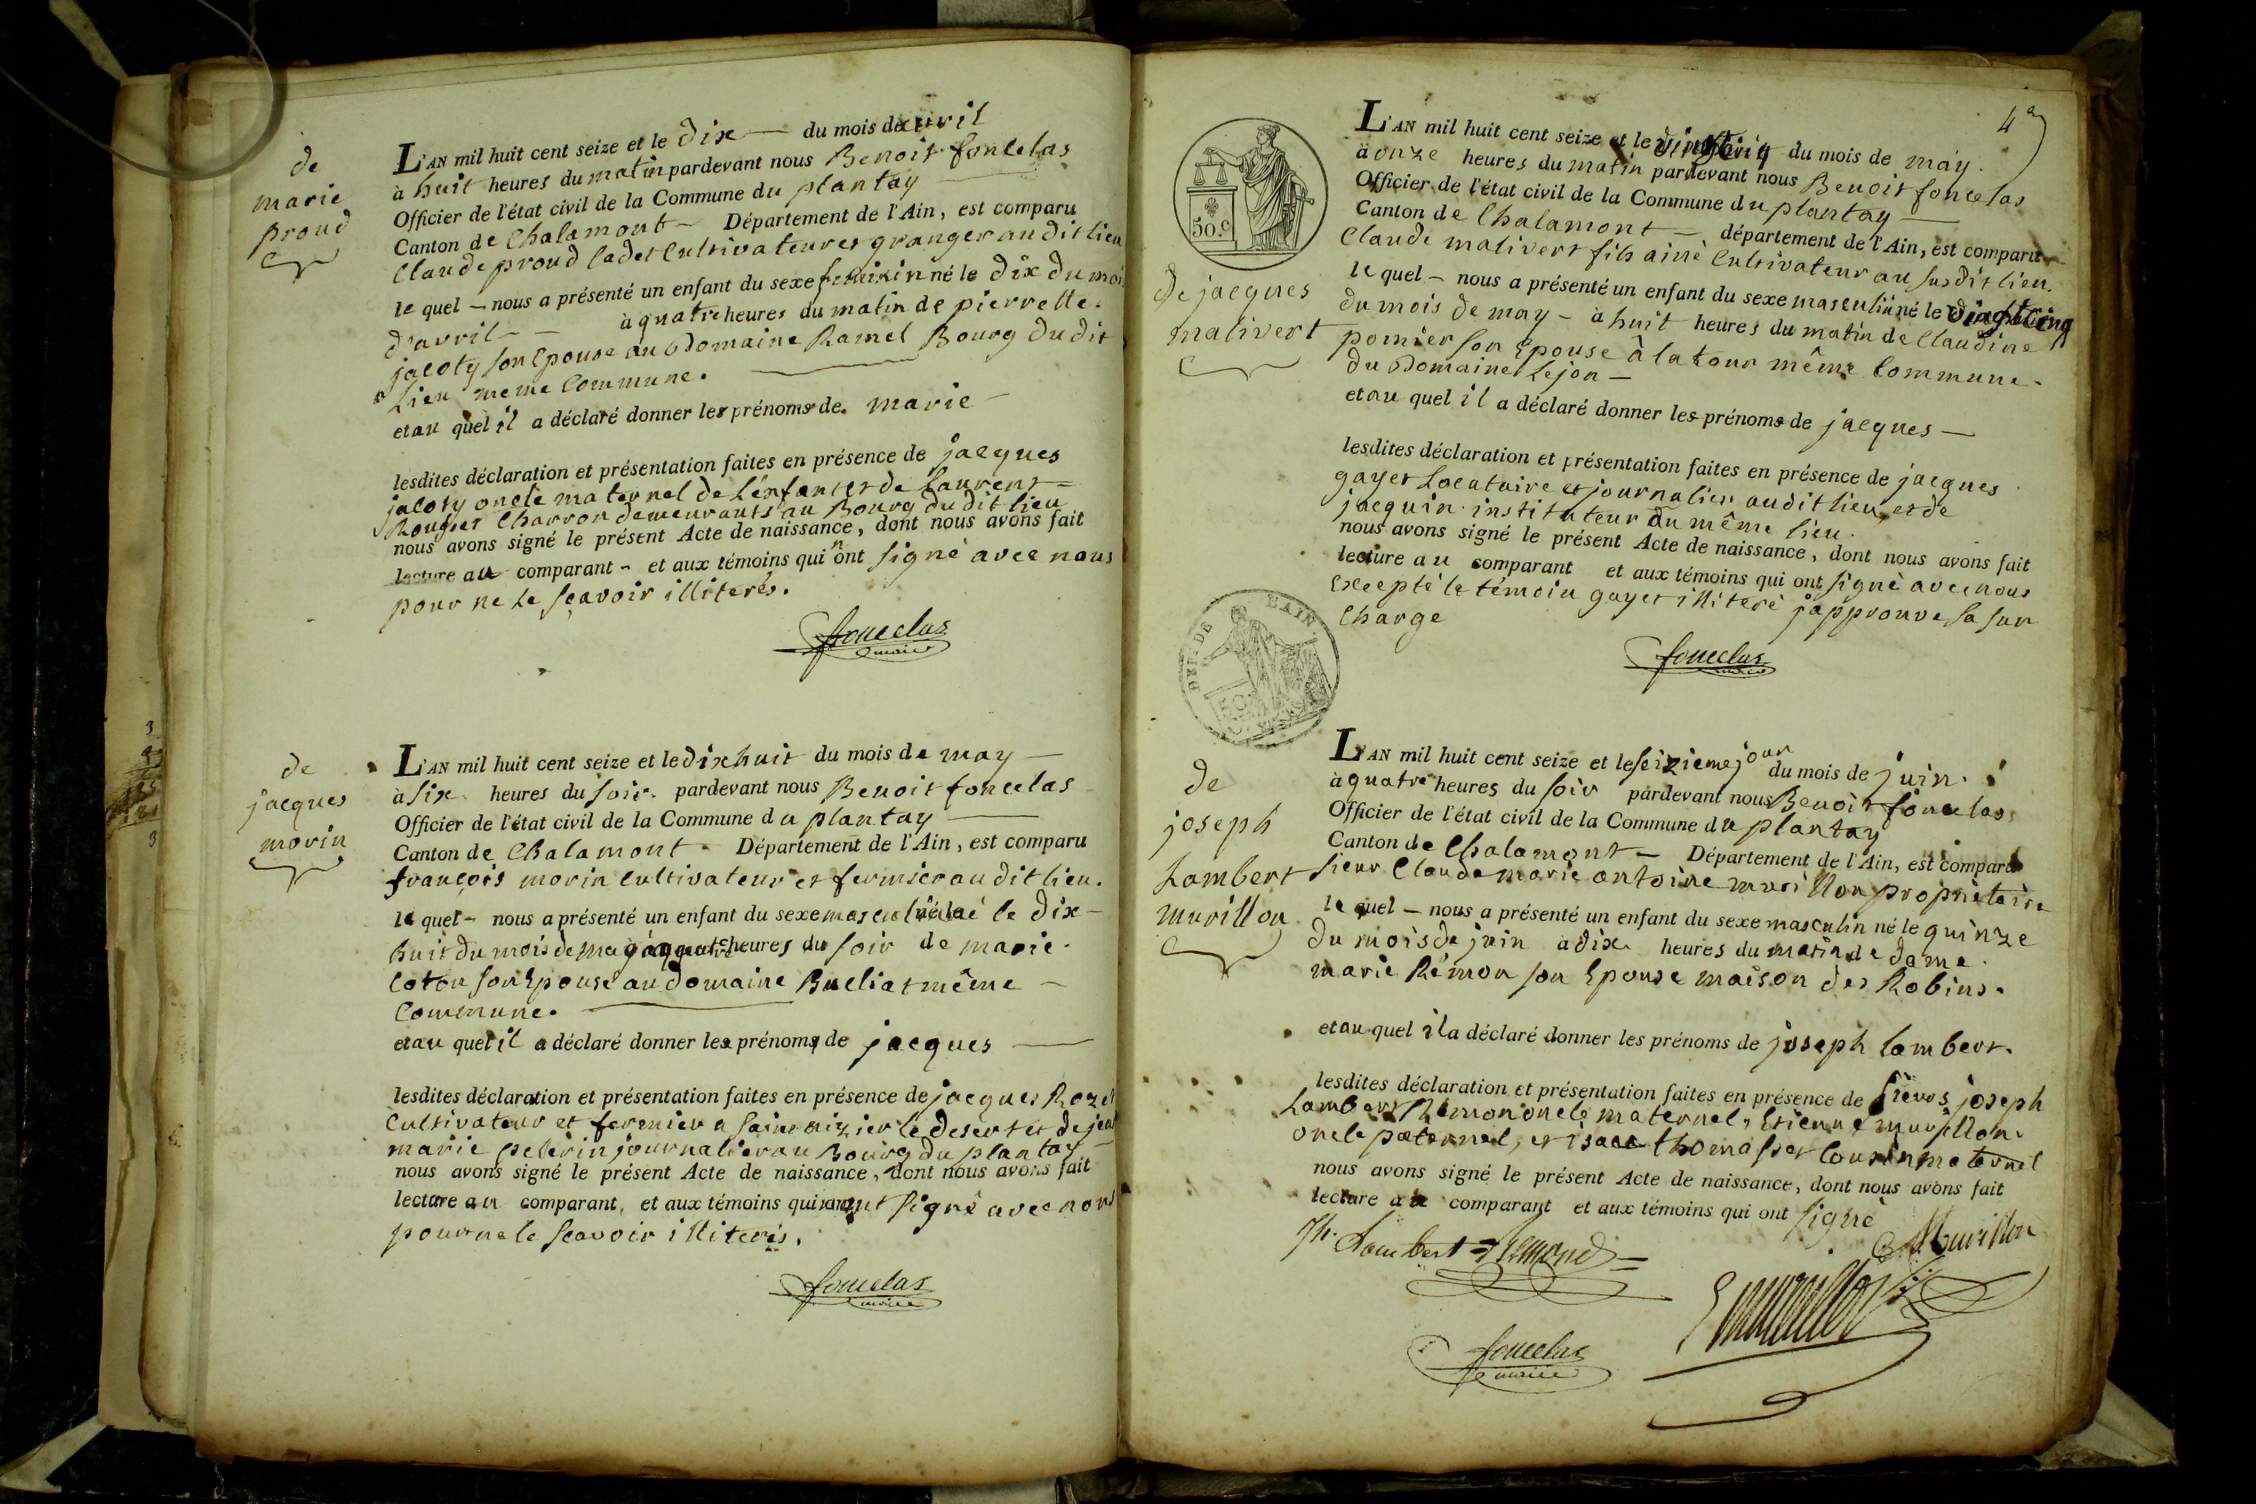 de
marie
proud
L'AN mil huit cent seize et le dix — du mois d'avril
à huit heures du matin pardevant nous Benoit fonclas
Officier de l'état civil de la Commune du plantay
Canton de Chalamont — Département de l'Ain, est comparu
Claude proud Cadet Cultivateur et granger au dit lieu
le quel — nous a présenté un enfant du sexe feminin né le dix du moi
d'avril — à quatre heures du matin de pierrette
jacoty son Epouse au Domaine Ramel Bourg du dit
Lieu meme Commune.
et au quel il a déclaré donner les prénoms de marie —
lesdites déclaration et présentation faites en présence de jacques
jacoty oncle maternel de L'enfant et de Laurent
Rougier Charron demeurants au Bourg du dit lieu
nous avons signé le présent Acte de naissance, dont nous avons fait
lecture au comparant - et aux témoins qui n'ont signé avec nous
pour ne Le sçavoir illiterés.
fonclas
maire
de
jacques
morin
L'AN mil huit cent seize et le dix huit du mois de may —
à six heures du soir pardevant nous Benoit fonclas
Officier de l'état civil de la Commune du plantay
Canton de Chalamont. Département de l'Ain, est comparu
françois morin Cultivateur et fermier au dit lieu.
le quel - nous a présenté un enfant du sexe masculin né le dix-
huit du mois de may à quatre heures du soir de marie
Coton son Epouse au domaine Bueliat même —
Commune.
et au quel il a déclaré donner les prénoms de jacques —
lesdites déclaration et présentation faites en présence de jacques Rozet
Cultivateur et fermier a saint nizier le desert et de jean
marie pelerin journalier au Bourg du plantay
nous avons signé le présent Acte de naissance, dont nous avons fait
lecture au comparant, et aux témoins qui n'ont signé avec nous
pour ne le sçavoir illiterés.
fonclas
maire
4
50.c
de jacques
malivert
L'AN mil huit cent seize et le vingtcinq du mois de may.
à onze heures du matin pardevant nous Benoit fonclas
Officier de l'état civil de la Commune du plantay —
Canton de Chalamont — département de l'Ain, est comparu
Claude malivert fils ainé Cultivateur au susdit lieu.
le quel — nous a présenté un enfant du sexe masculin né le vingtcinq
du mois de may - à huit heures du matin de Claudine
pomier son Epouse à la tour même Commune.
du Domaine Lejon —
et au quel il a déclaré donner les prénoms de jacques —
lesdites déclaration et présentation faites en présence de jacques
gayet Locataire et journalier au dit lieu, et de
jacquin instituteur du même lieu.
nous avons signé le présent Acte de naissance, dont nous avons fait
lecture au comparant et aux témoins qui ont signé avec nous
Excepté le témoin gayet illiteré j'approuve la sur
Charge
fonclas
maire
DEP. DE L'AIN
50
de
joseph
Lambert
murillon
L'AN mil huit cent seize et le seizieme jour du mois de juin.
à quatre heures du soir pardevant nous Benoit fonclas
Officier de l'état civil de la Commune du plantay
Canton de Chalamont — Département de l'Ain, est comparu
sieur Claude marie antoine murillon proprietaire
le quel — nous a présenté un enfant du sexe masculin né le quinze
du mois de juin à dix heures du matin de dame
marie Rémon son Epouse maison des Robins.
et au quel il a déclaré donner les prénoms de joseph lambert.
lesdites déclaration et présentation faites en présence de sieurs joseph
Lambert Rémon oncle maternel, Etienne murillon
oncle paternel, et isaac thomasset Cousin maternel
nous avons signé le présent Acte de naissance, dont nous avons fait
lecture au comparant et aux témoins qui ont signé
Jh. Lambert Remond
Murillon
E murillon
fonclas
maire